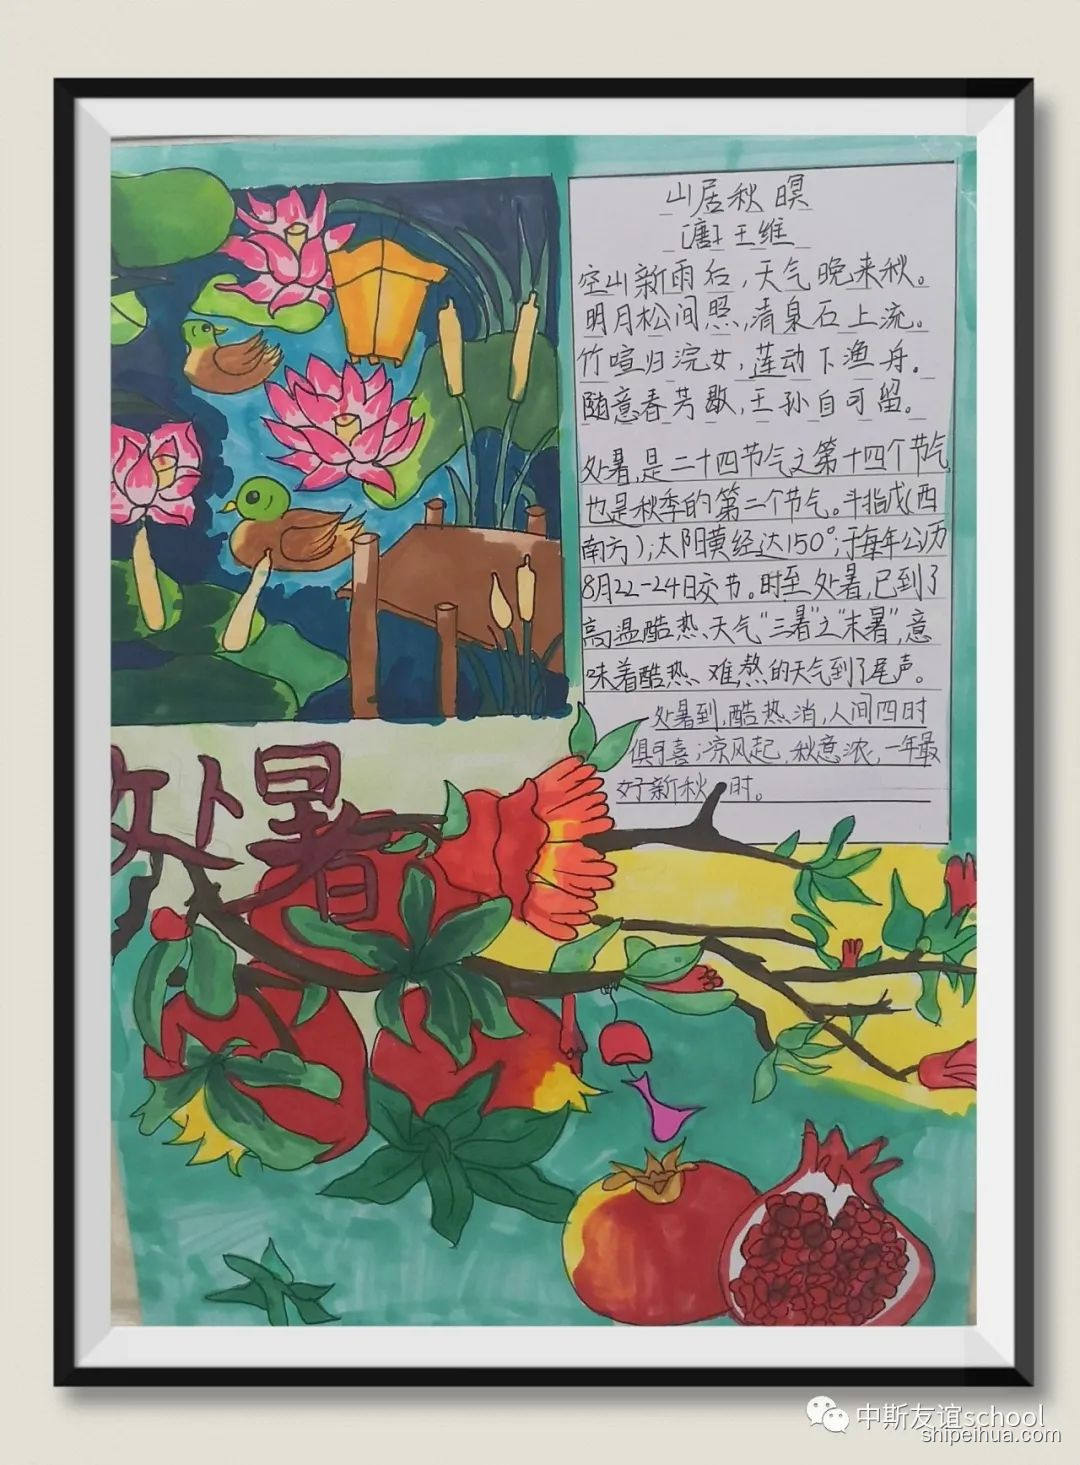 山居秋暝
[唐] 王维
空山新雨后,天气晚来秋。
明月松间照,清泉石上流。
竹喧归浣女,莲动下渔舟。
随意春芳歇,王孙自可留。
处暑,是二十四节气之第十四个节气
也是秋季的第二个节气。斗指戌(西
南方);太阳黄经达150°;于每年公历
8月22-24日交节。时至处暑,已到了
高温酷热、天气“三暑”之“末暑”,意
味着酷热、难熬的天气到了尾声。
处暑到,酷热消,人间四时
俱可喜;凉风起,秋意浓,一年最
好新秋时。
处暑
中斯友谊school
shipeihua.com